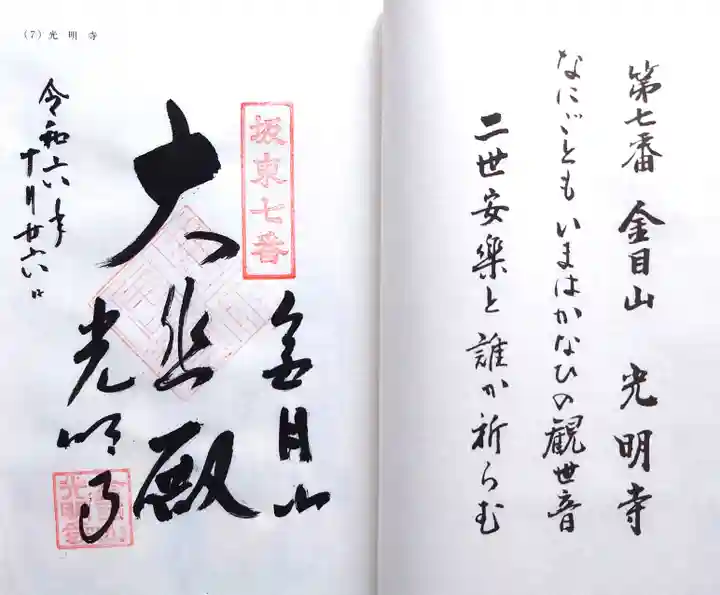 第七番 金目山 光明寺
なにごとも いまはかなひの 観世音
二世安楽と 誰か祈らむ
(7)光明寺
坂東七番
金目山
大悲殿
光明寺
令和六年
十月廿六日
光明寺